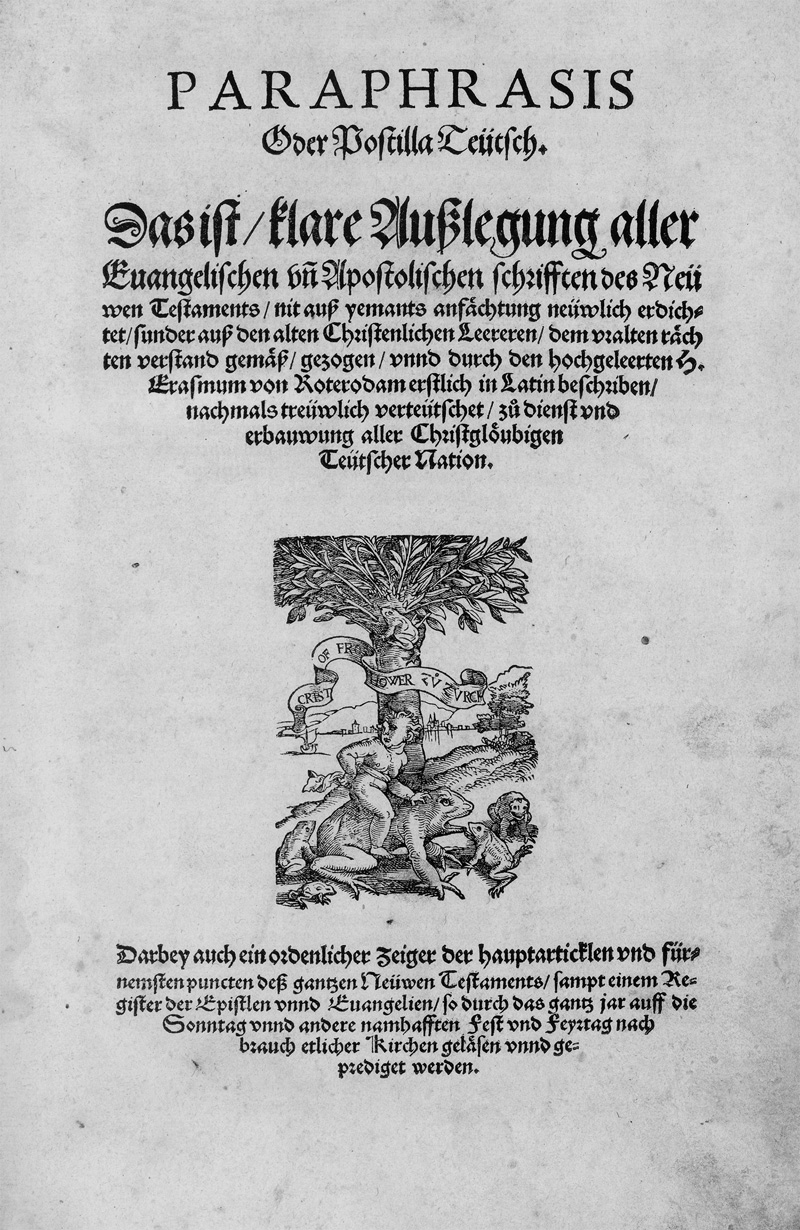 PARAPHRASIS
Oder Postilla Teütsch.
Das ist/ klare Außlegung aller
Euangelischen vñ Apostolischen schrifften des Neü
wen Testaments/ nit auß yemants anfächtung neüwlich erdich-
tet/ sunder auß den alten Christenlichen Leereren/ dem vralten räch
ten verstand gemäß/ gezogen/ vnnd durch den hochgeleerten H.
Erasmum von Roterodam erstlich in Latin beschriben/
nachmals treüwlich verteütschet/ zů dienst vnd
erbauwung aller Christglöubigen
Teütscher Nation.
CRIST OF FRO HOWER ZV ZVRCH
Darbey auch ein ordenlicher Zeiger der hauptarticklen vnd für-
nemsten puncten deß gantzen Neüwen Testaments/ sampt einem Re-
gister der Epistlen vnnd Euangelien/ so durch das gantz jar auff die
Sonntag vnnd andere namhafften Fest vnd Feyrtag nach
brauch etlicher Kirchen geläsen vnnd ge-
prediget werden.